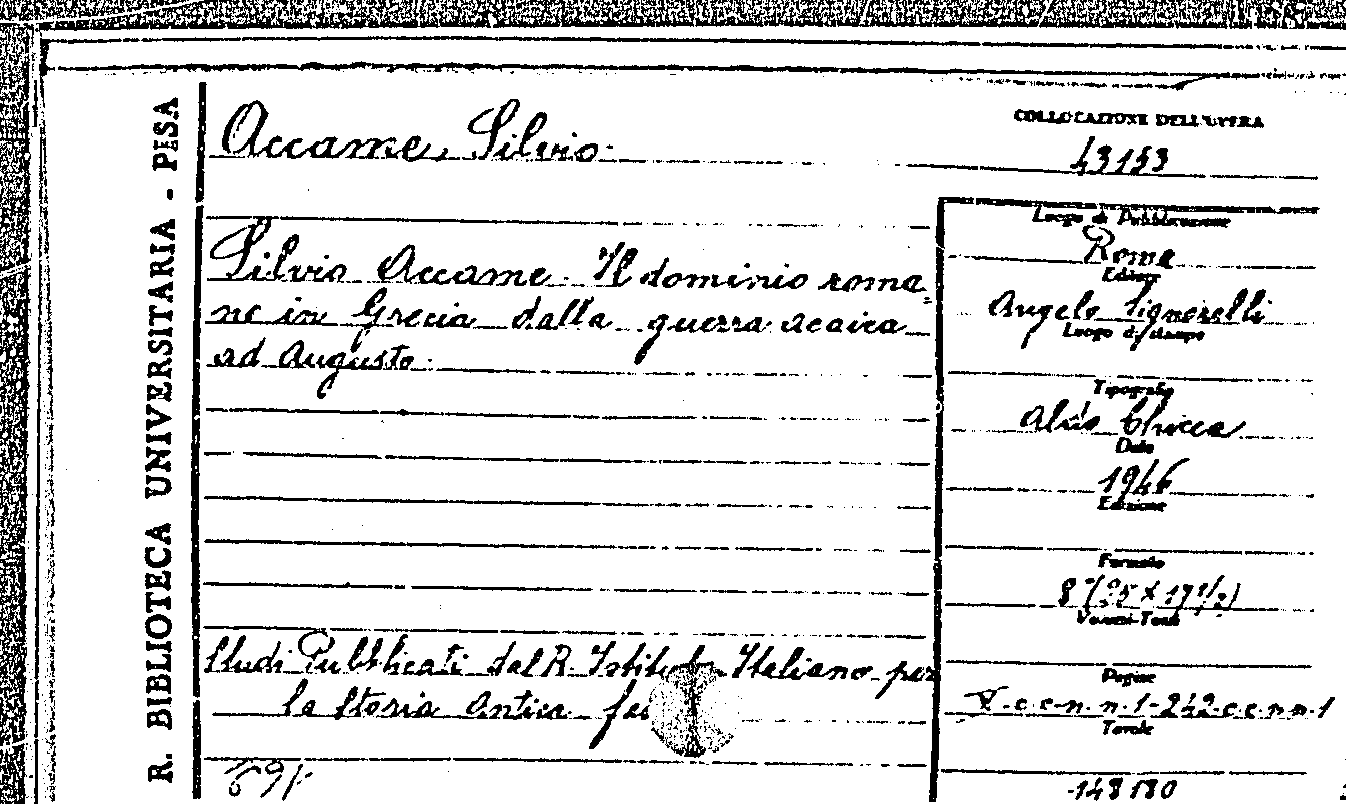 R. BIBLIOTECA UNIVERSITARIA - PISA
Accame, Silvio.
COLLOCAZIONE DELL'OPERA
43153
Silvio Accame. Il dominio roma=
no in Grecia dalla guerra acaica
ad Augusto.
Luogo di Pubblicazione
Roma
Editore
Angelo Signorelli
Luogo di stampa
Tipografo
Chicca
Data
1946
Edizione
Formato
8°(25 X 17 1/2)
Volumi-Tomi
Studi Pubblicati dal R. Istituto Italiano per
la Storia Antica
Pagine
1-242
Tavole
148180